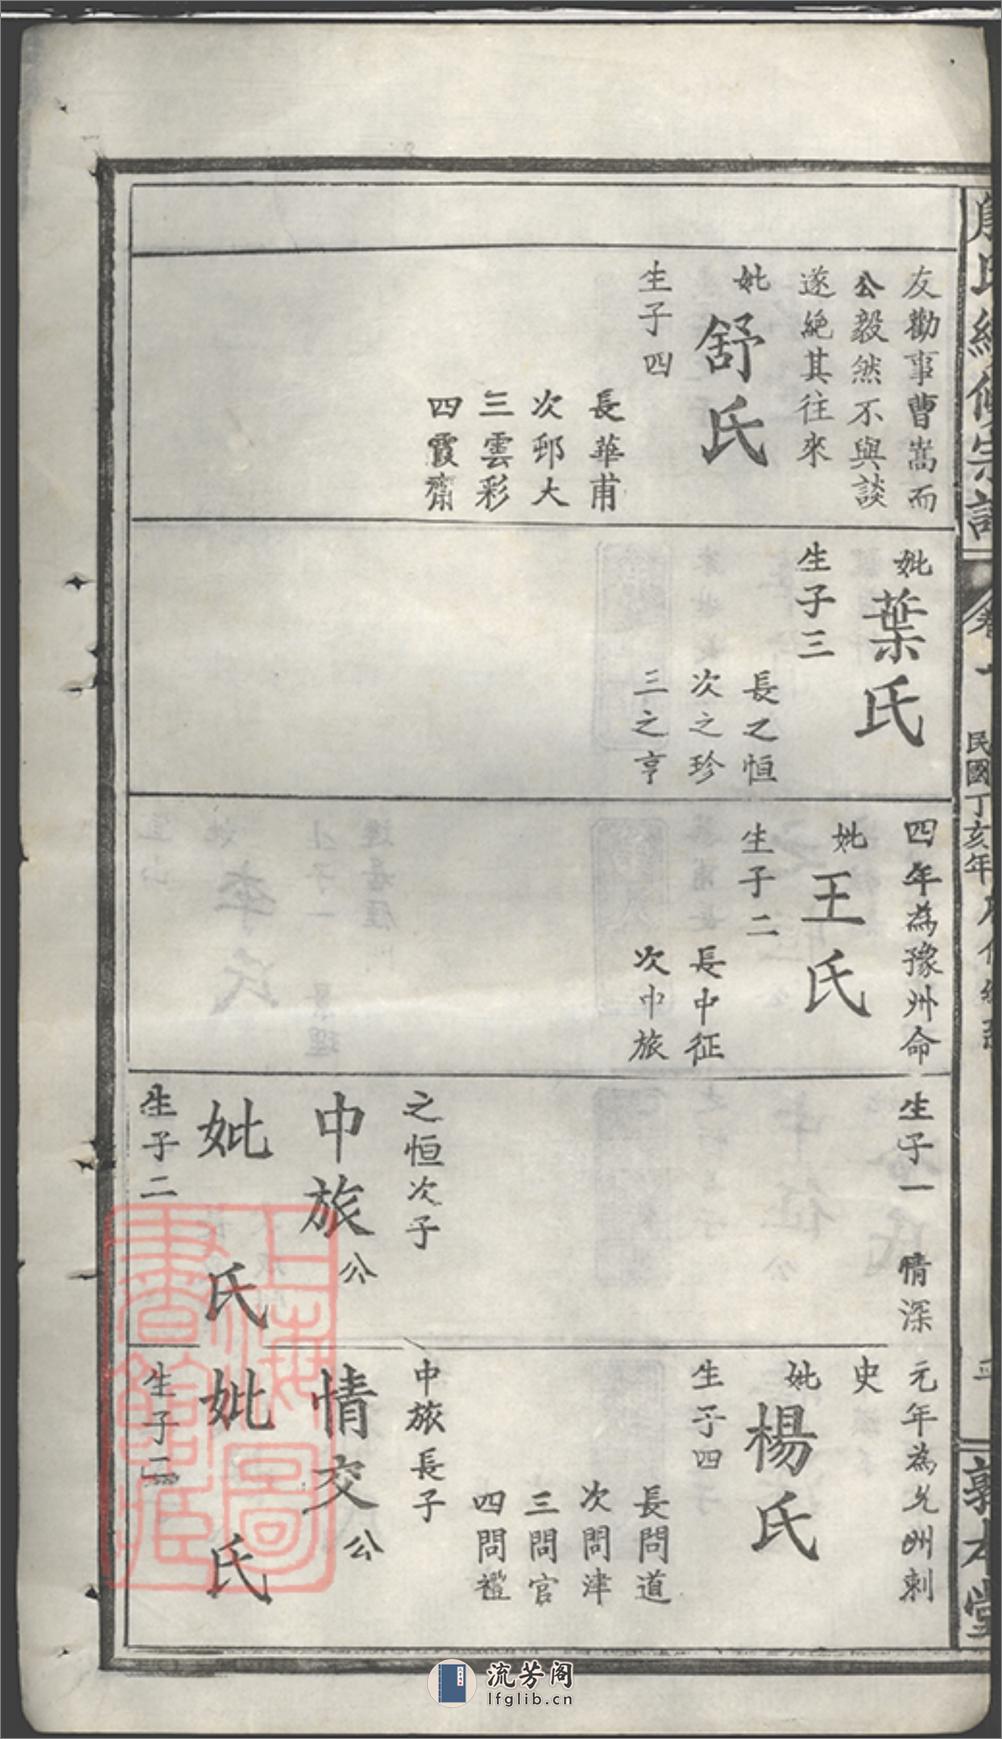 氏續修宗譜
卷一
民國丁亥年
敦本堂
友勸事曹嵩而
公毅然不與談
遂絕其往來
妣舒氏
生子四
長華甫
次邨大
三雲彩
四霞齋
妣葉氏
生子三
長之恒
次之珍
三之亨
四年為豫州命
妣王氏
生子二
長中征
次中旅
生子一 情深
之恒次子
中旅公
妣 氏
生子二
元年為兗州刺
史
妣楊氏
生子四
長問道
次問津
三問官
四問禮
中旅長子
情交公
妣 氏
生子二
上海圖書館藏
流芳阁
lfglib.cn